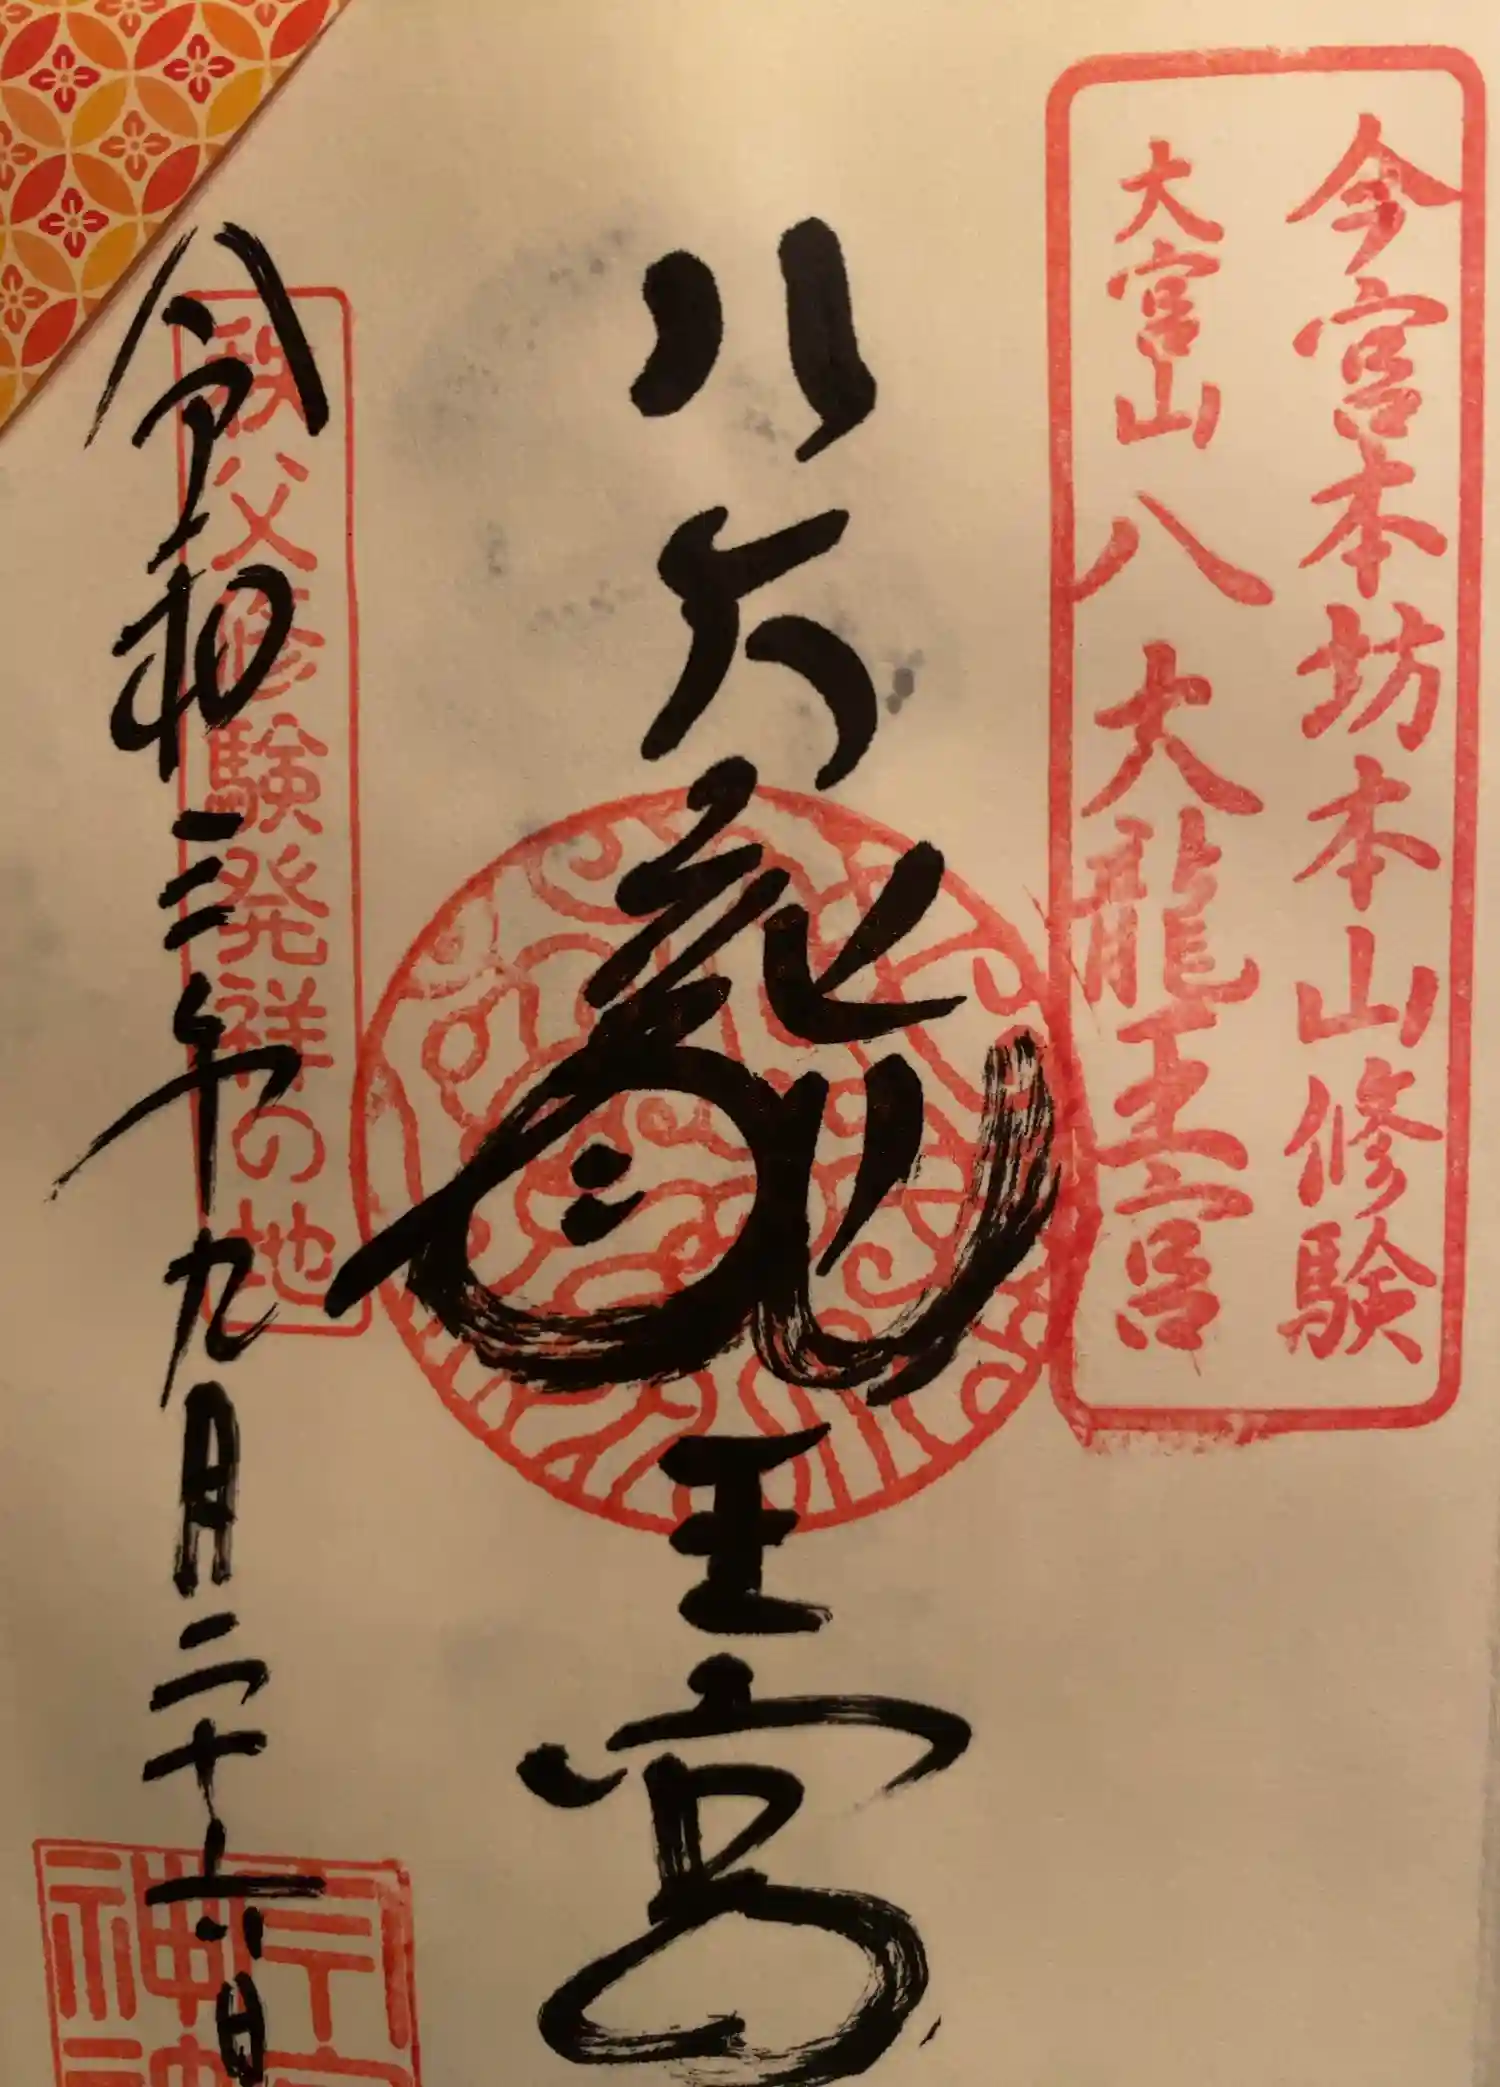 今宮本坊本山修験
大宮山 八大龍王宮
八大龍王宮
秩父修験発祥の地
令和三年九月二十六日